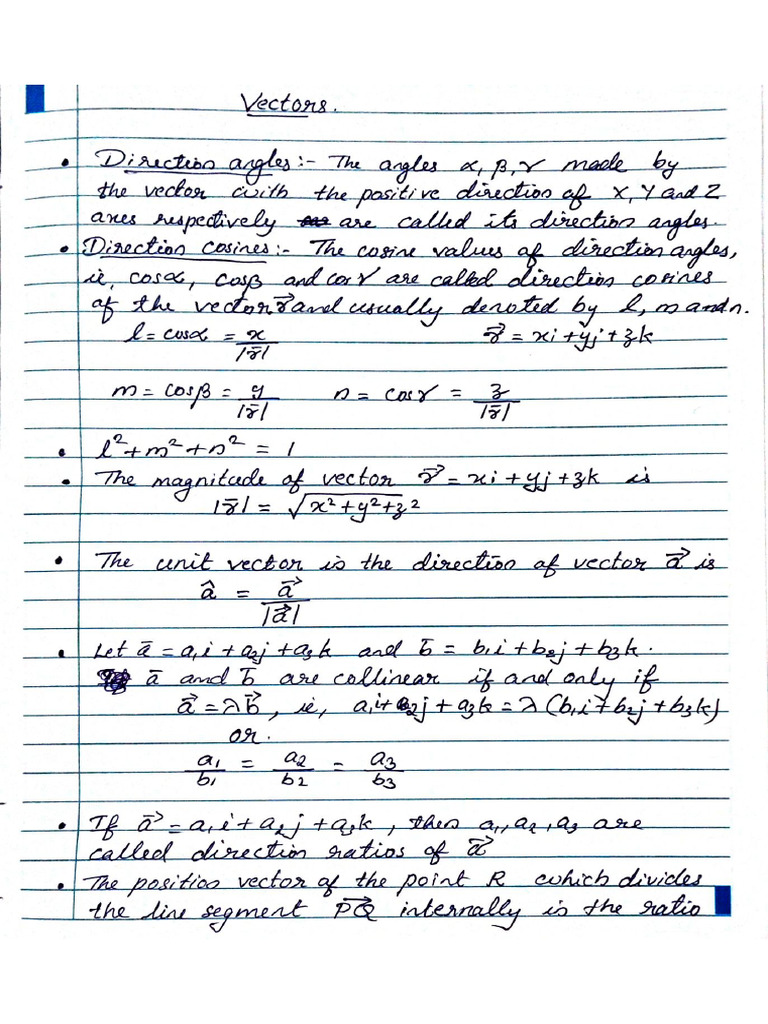 Vectors.
• Direction angles:- The angles α, β, γ made by
the vector with the positive direction of X, Y and Z
axes respectively are called its direction angles.
• Direction cosines:- The cosine values of direction angles,
ie, cosα, cosβ and cosγ are called direction cosines
of the vector r⃗ and usually denoted by l, m and n.
l = cosα = x/|r̄| r⃗ = xi + yj + zk
m = cosβ = y/|r̄| n = cosγ = z/|r̄|
• l² + m² + n² = 1
• The magnitude of vector r⃗ = xi + yj + zk is
|r̄| = √x² + y² + z²
• The unit vector in the direction of vector a⃗ is
â = a⃗/|a⃗|
• Let ā = a₁i + a₂j + a₃k and b̄ = b₁i + b₂j + b₃k.
ā and b̄ are collinear if and only if
a⃗ = λb⃗, ie, a₁i + a₂j + a₃k = λ(b₁i + b₂j + b₃k)
or.
a₁/b₁ = a₂/b₂ = a₃/b₃
• If a⃗ = a₁i + a₂j + a₃k, then a₁, a₂, a₃ are
called direction ratios of a⃗
• The position vector of the point R which divides
the line segment P⃗Q internally in the ratio